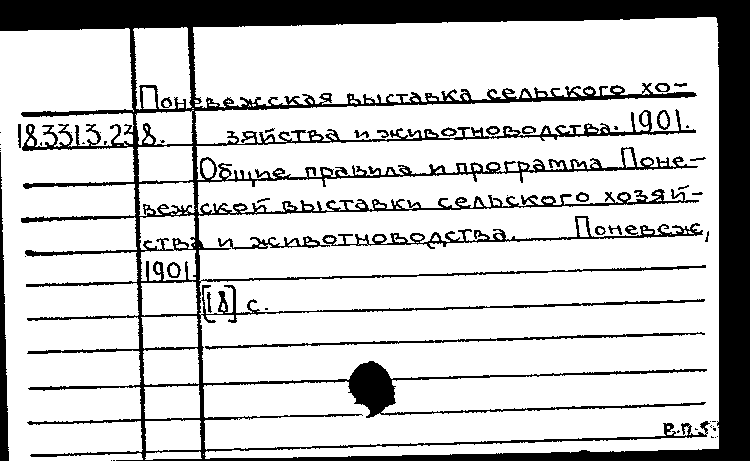 Поневежская выставка сельского хо-
18.3313.238. зяйства и животноводства. 1901.
Общие правила и программа Поне-
вежской выставки сельского хозяй-
ства и животноводства. Поневеж,
1901.
[18] с.